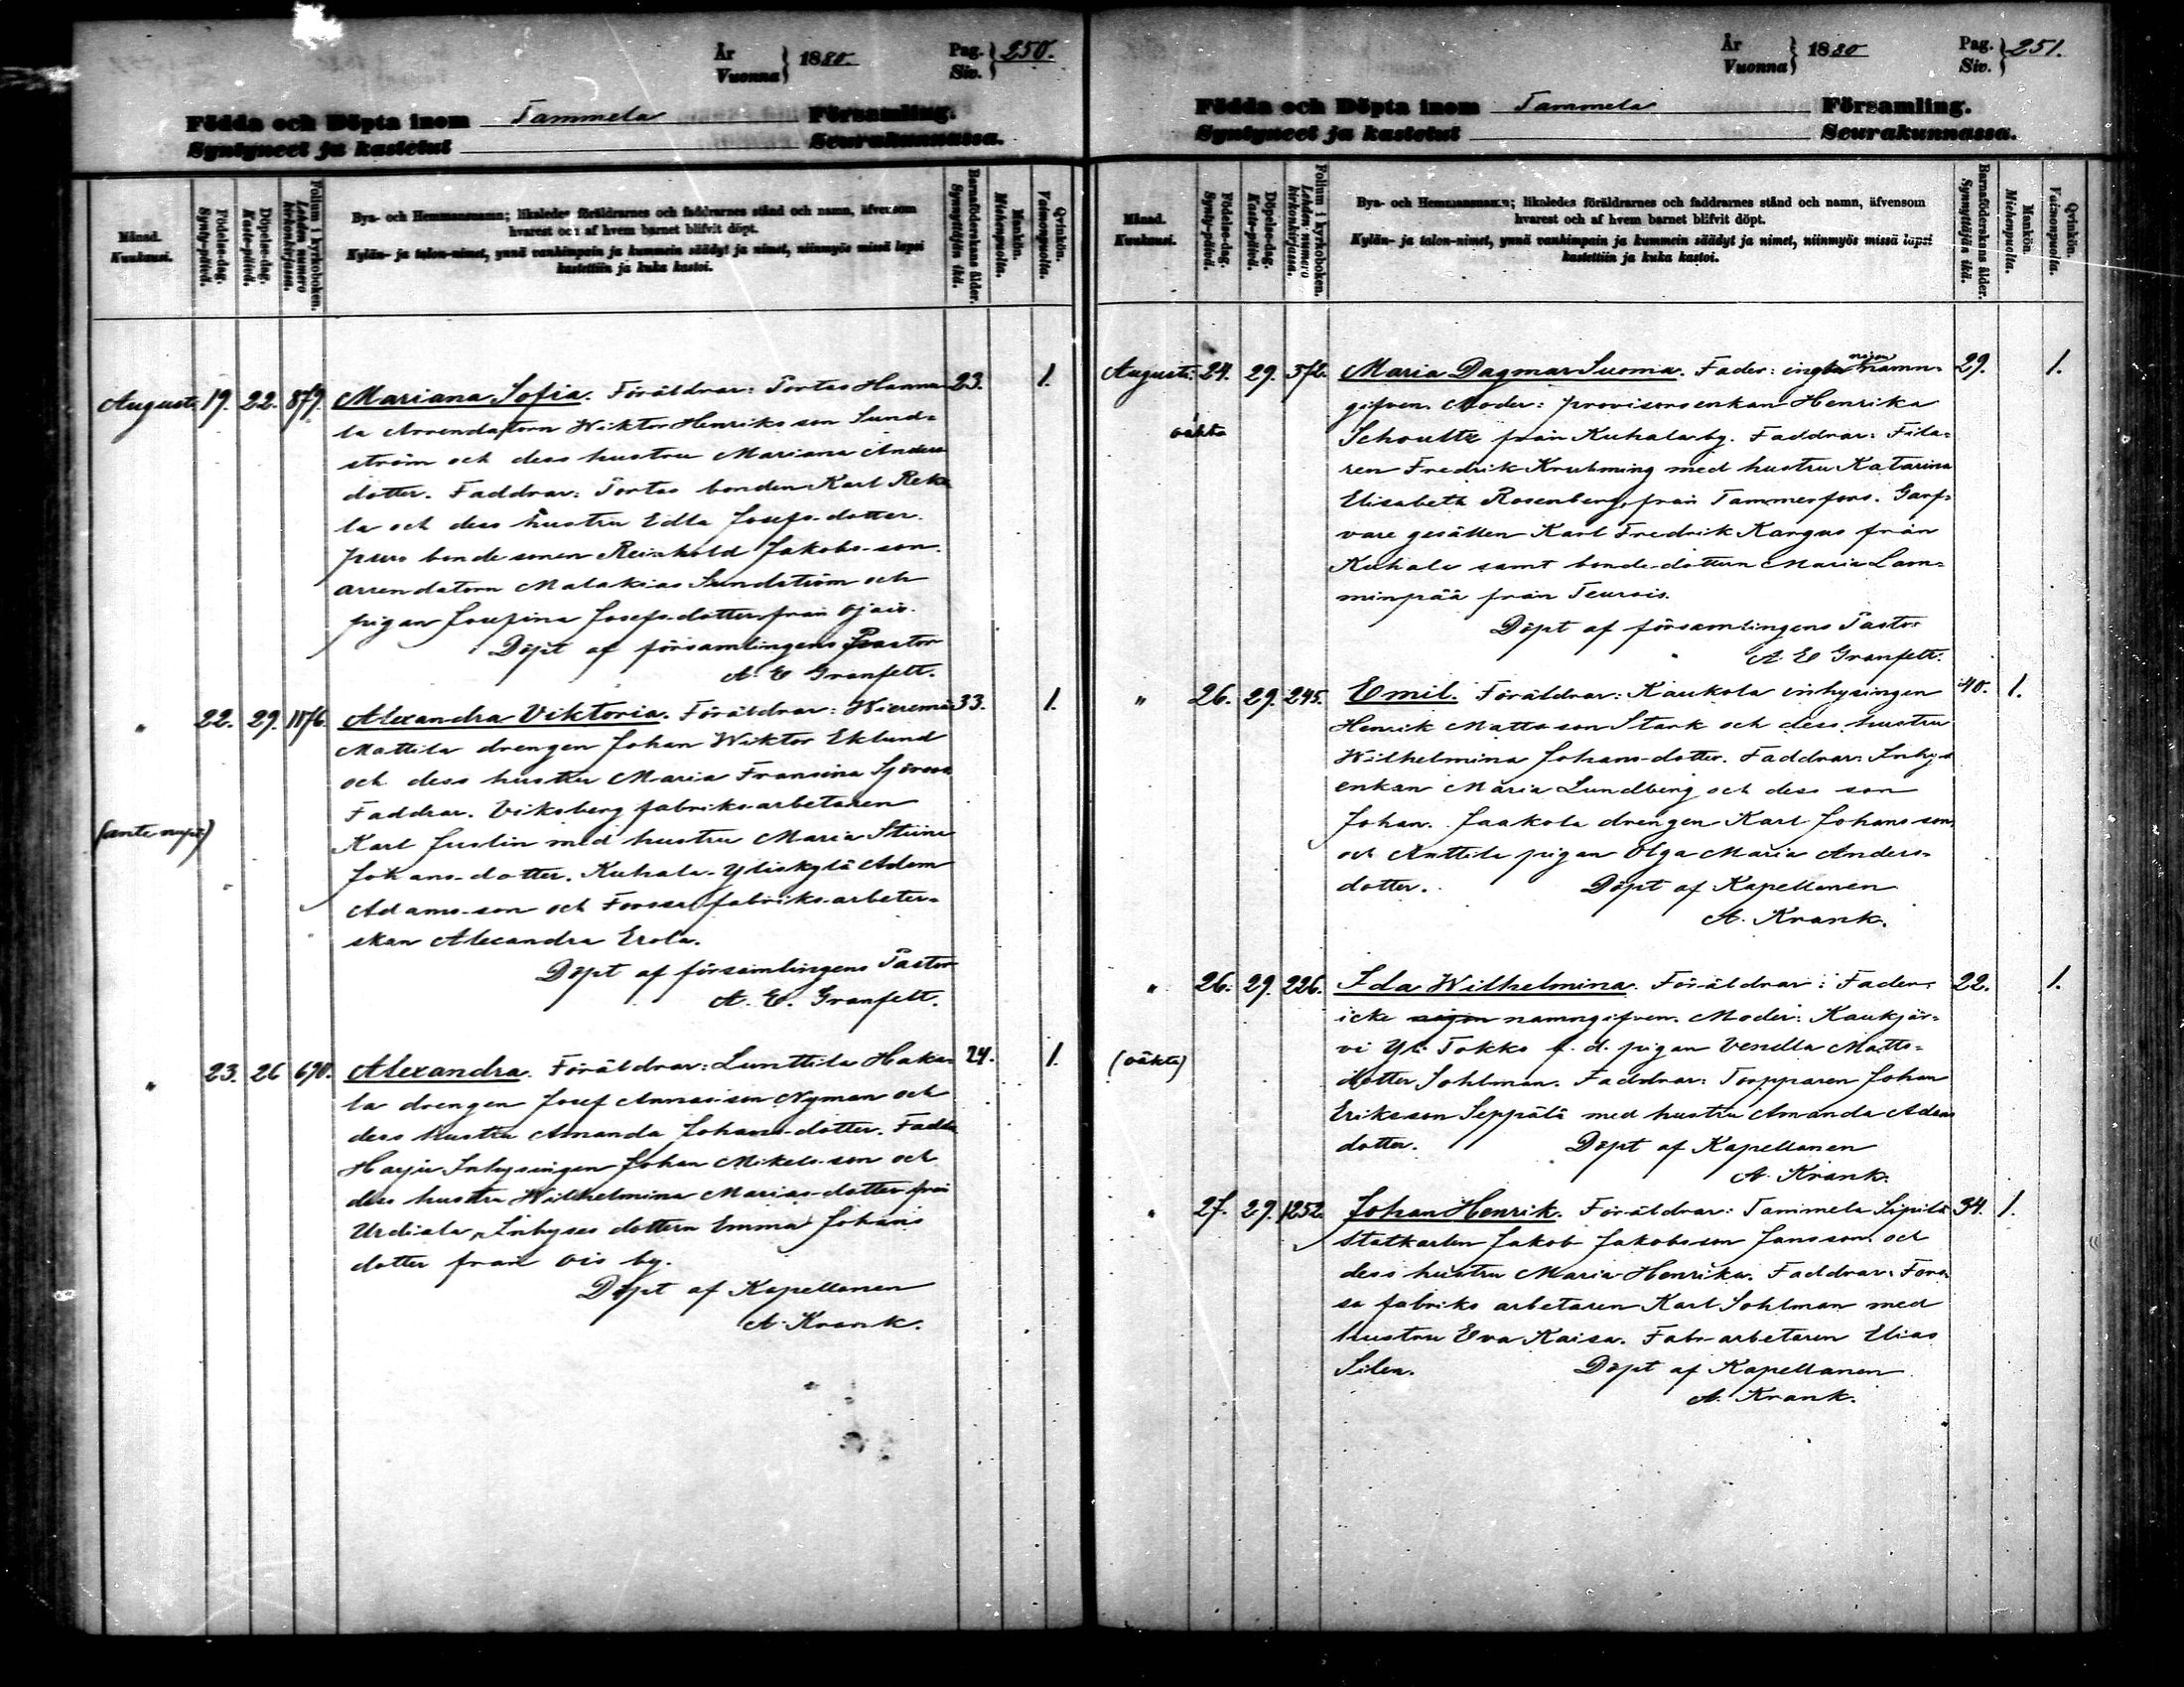 År
Vuonna } 1880.
Pag.
Siv. } 250.
Födda och Döpta inom Tammela Församling.
Syntyneet ja kastetut Seurakunnassa.
Månad.
Kuukausi.
Födelse-dag.
Synty-päivä.
Döpelse-dag.
Kaste-päivä.
Folium i kyrkoboken.
Lehden numero kirkonkirjassa.
Bya- och Hemmansnamn; likaledes föräldrarnes och faddrarnes stånd och namn, äfvensom
hvarest och af hvem barnet blifvit döpt.
Kylän- ja talon-nimet, ynnä vanhimpain ja kummein säädyt ja nimet, niinmyös missä lapsi
kastettiin ja kuka kastoi.
Barnaföderskans ålder.
Synnyttäjän ikä.
Mankön.
Miehenpuolta.
Qvinkön.
Vaimonpuolta.
August. 19. 22. 879. Mariana Sofia. Föräldrar: Portas Hannu- 23. 1.
la Arrendatorn Wiktor Henriksson Sund-
ström och dess hustru Mariana Anders
dotter. Faddrar: Portas bonden Karl Reko
la och dess hustru Edla Josefs-dotter.
puro bondesonen Reinhold Jakobs-son.
arrendatorn Malakias Sundström och
pigan Josefina Josefs-dotter från Ojais.
Döpt af församlingens Pastor
A. E Granfelt.
" 22. 29. 1176. Alexandra Viktoria. Föräldrar: Hieremä 33. 1.
Mattila drengen Johan Wiktor Eklund
och dess hustru Maria Fransina Sjöroos
Faddrar. Viksberg fabriksarbetaren
(ante nupt)
Karl Juslin med hustru Maria Stiina
Johans-dotter. Kuhala-Yliskylä Adam
Adams-son och Forssa fabriks-arbeter-
skan Alexandra Erola.
Döpt af församlingens Pastor
A. E. Granfelt.
" 23. 26 690. Alexandra. Föräldrar: Lunttila Haka- 24. 1.
la drengen Josef Annasson Nyman och
dess hustru Amanda Johans-dotter. Faddr.
Harju Inhysingen Johan Mikels-son och
dess hustru Wilhelmina Marias-dotter från
Urdiala, Inhyses dottern Emma Johans
dotter från Ois by.
Döpt af Kapellanen
A. Krank.
År
Vuonna } 1880
Pag.
Siv. } 251.
Födda och Döpta inom Tammela Församling.
Syntyneet ja kastetut Seurakunnassa.
Månad.
Kuukausi.
Födelse-dag.
Synty-päivä.
Döpelse-dag.
Kaste-päivä.
Folium i kyrkoboken.
Lehden numero kirkonkirjassa.
Bya- och Hemmansnamn; likaledes föräldrarnes och faddrarnes stånd och namn, äfvensom
hvarest och af hvem barnet blifvit döpt.
Kylän- ja talon-nimet, ynnä vanhimpain ja kummein säädyt ja nimet, niinmyös missä lapsi
kastettiin ja kuka kastoi.
Barnaföderskans ålder.
Synnyttäjän ikä.
Mankön.
Miehenpuolta.
Qvinkön.
Vaimonpuolta.
August: 24. 29. 372. Maria Dagmar Suoma. Fader: namn- 29. 1.
gifven. Moder: provisorsenkan Henrika
oäkta
Schoultz från Kuhala by. Faddrar: Fila-
ren Fredrik Kruhming med hustru Katarina
Elisabeth Rosenberg, från Tammerfors. Garf-
vare gesällen Karl Fredrik Kangas från
Kuhala samt bonde-dottern Maria Lam-
minpää från Teurois.
Döpt af församlingens Pastor
A. E Granfelt.
" 26. 29. 245. Emil. Föräldrar: Kaukola inhysingen 40. 1.
Henrik Mattsson Stark och dess hustru
Wilhelmina Johans-dotter. Faddrar: Inhys
enkan Maria Lundberg och dess son
Johan. Jaakola drengen Karl Johans-son,
och Anttila pigan Olga Maria Anders-
dotter. Döpt af Kapellanen
A. Krank.
" 26. 29. 226. Ida Wilhelmina. Föräldrar: Fader: 22. 1.
icke någon namngifven. Moder: Kaukjär-
vi Yli Tokko f. d. pigan Vendla Matts-
(oäkta)
dotter Sohlman. Faddrar: Torpparen Johan
Eriksson Seppälä med hustru Amanda Adams
dotter. Döpt af Kapellanen
A. Krank.
" 27. 29. 1252. Johan Henrik. Föräldrar: Tammela Sipilä 34. 1.
Statkarlen Jakob Jakobsson Jansson och
dess hustru Maria Henrika. Faddrar: Fors-
sa fabriks arbetaren Karl Sohlman med
hustru Eva Kaisa. Fabr-arbetaren Elias
Silen. Döpt af Kapellanen
A. Krank.